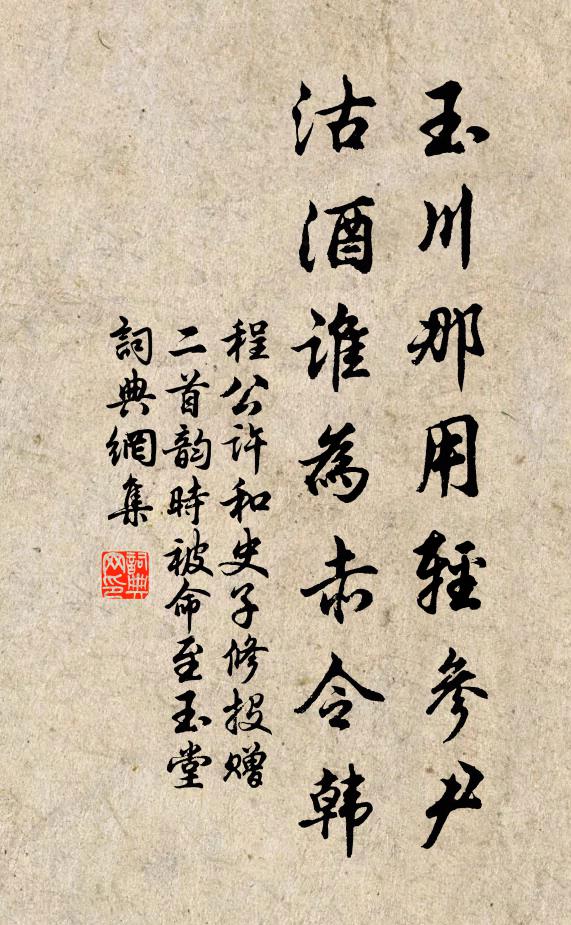 玉川那用輕參尹
沽酒誰為赤令韓
程公許和史子修投贈
二首韵時被命至玉堂
詞典網集
詞典网印